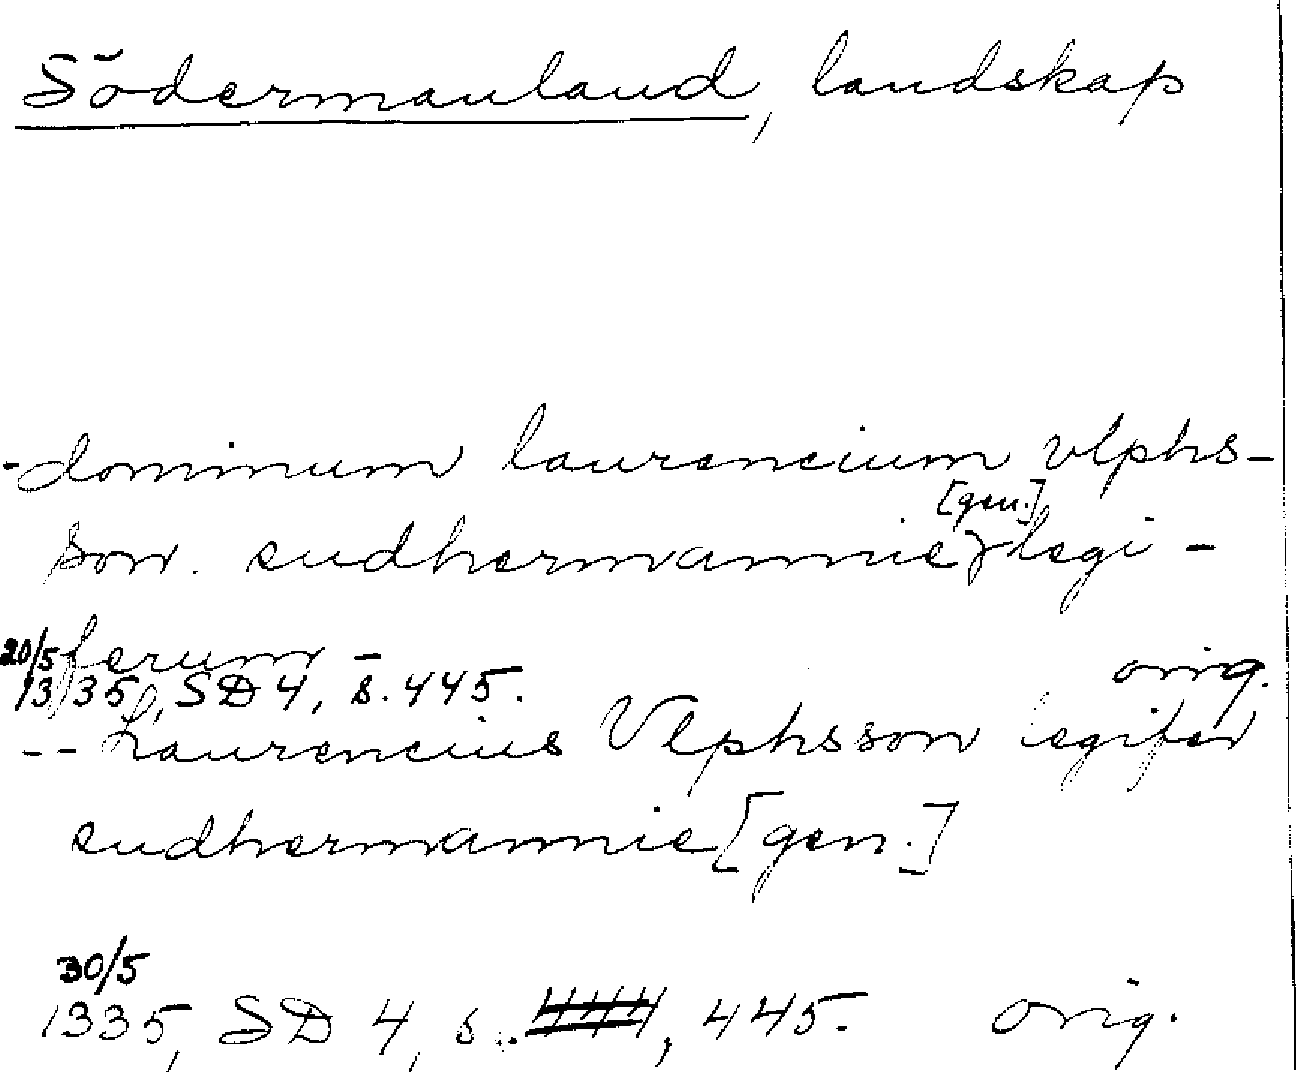 Södermanland, landskap
- dominum laurencium vlphs-
son. sudhermannie [gen.] legi -
ferum -
20/5 1335, SD 4, s. 445. orig.
-- Laurencius Vlphsson legifer
sudhermannie [gen.]
30/5
1335, SD 4, s. , 445. orig.